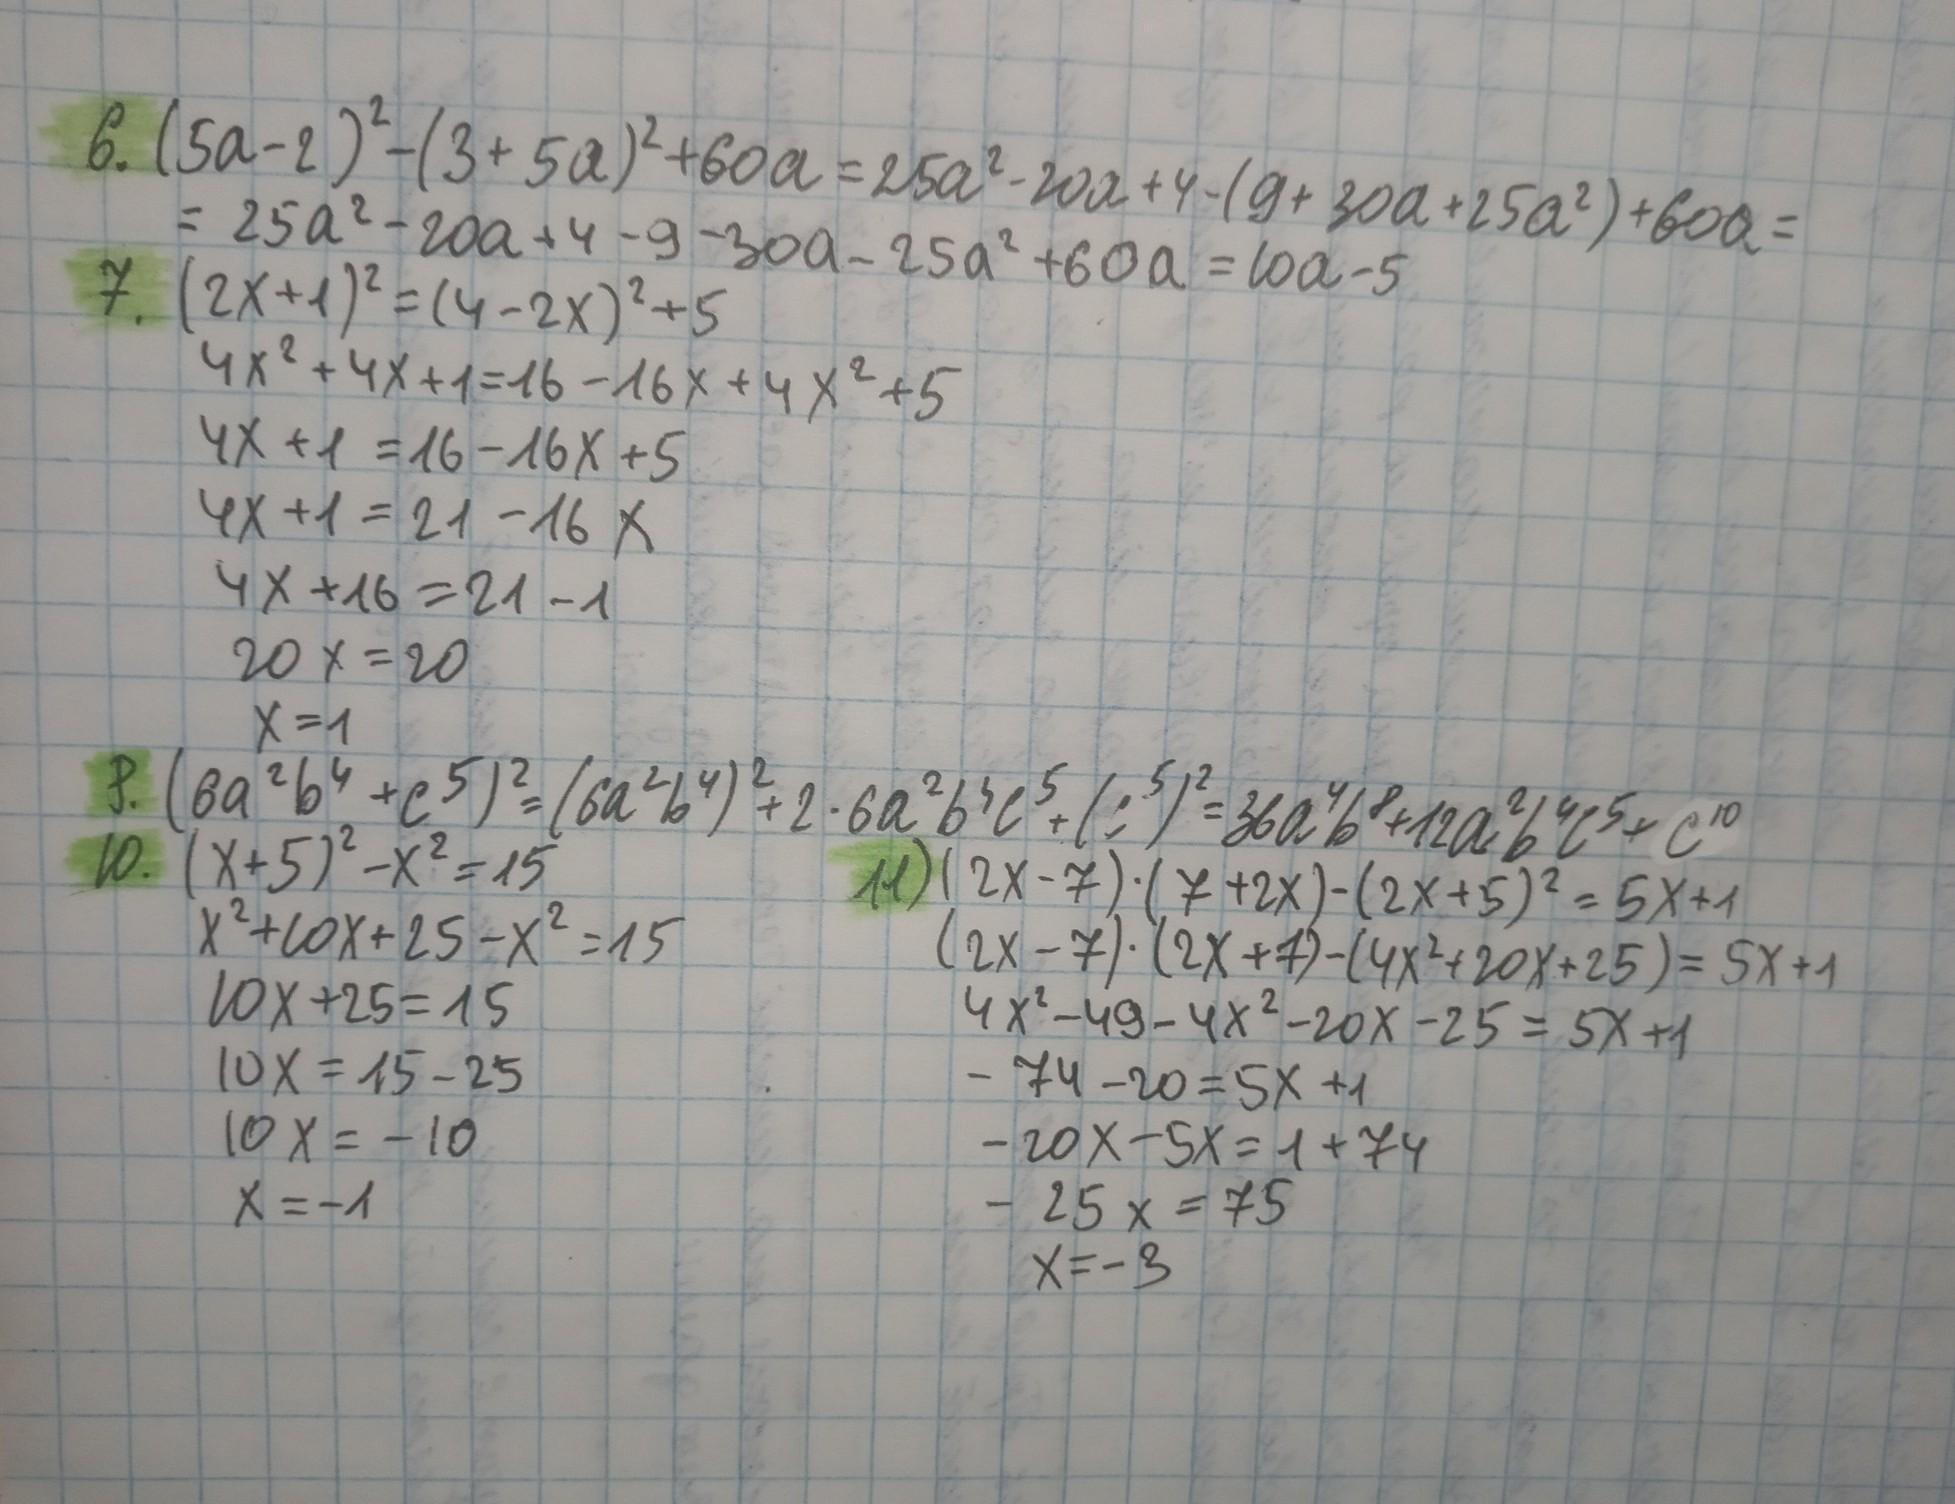 6. (5a-2)²-(3+5a)²+60a=25a²-20a+4-(9+30a+25a²)+60a=
= 25a²-20a+4-9-30a-25a²+60a=10a-5
7. (2x+1)²=(4-2x)²+5
4x²+4x+1=16-16x+4x²+5
4x+1=16-16x+5
4x+1=21-16x
4x+16=21-1
20x=20
x=1
9. (6a²b⁴+c⁵)²=(6a²b⁴)²+2·6a²b⁴c⁵+(c⁵)²=36a⁴b⁸+12a²b⁴c⁵+c¹⁰
10. (x+5)²-x²=15
x²+10x+25-x²=15
10x+25=15
10x=15-25
10x=-10
x=-1
11) (2x-7)·(7+2x)-(2x+5)²=5x+1
(2x-7)·(2x+7)-(4x²+20x+25)=5x+1
4x²-49-4x²-20x-25=5x+1
-74-20=5x+1
-20x-5x=1+74
-25x=75
x=-3